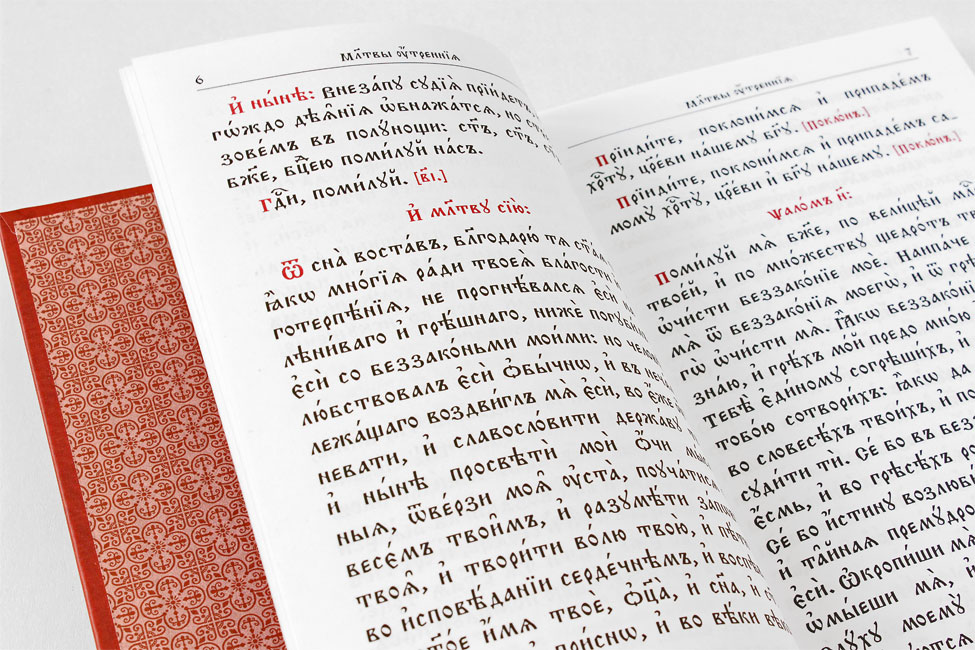 6
Мл҃твы ᲂу҆́треннїѧ
И҆ ны́нѣ: Внеза́пу сꙋдїѧ̀ прїи́детъ,
гѡ́ждо дѣѧ̑нїѧ ѡ҆бнажа́тсѧ, но стр
зове́мъ въ полꙋ́нощи: ст҃ъ, ст҃ъ, ст҃
бж҃е, бцⷣею поми́лꙋй на́съ.
Гдⷭ҇и, поми́лꙋй. [в҃і.]
И҆ мл҃твꙋ сїю̀:
Ѿ сна̀ воста́въ, благодарю́ тѧ ст҃а́
ꙗ҆́кѡ мно́гїѧ ра́ди твоеѧ̀ бл҃гости
готерпѣ́нїѧ, не прогнѣ́валсѧ є҆сѝ
лѣни́ваго и҆ грѣ́шнаго, ниже́ погꙋби́л
є҆сѝ со беззако́ньми мои́ми: но чело
лю́бствовалъ є҆сѝ ѻ҆бы́чнѡ, и҆ въ неч
лежа́щаго воздви́глъ мѧ̀ є҆сѝ, во є҆́же
невати, и҆ славосло́вити держа́вꙋ
и҆ ны́нѣ просвѣтѝ моѝ ѻ҆́чи мы́
ныѧ, ѿве́рзи моѧ̑ ᲂу҆ста̀, поꙋча́тисѧ
весе́мъ твои̑мъ, и҆ разꙋмѣ́ти за́по
твоѧ̑, и҆ твори́ти во́лю твою̀, и҆ пѣ́
во и҆сповѣ́данїи серде́чнѣмъ, и҆ воспѣ
то́е и҆́мѧ твоѐ, ѻ҆ц҃а̀, и҆ сн҃а, и҆
при́снѡ, и҆ во вѣ́ки вѣ
7
Мл҃твы ᲂу҆́треннїѧ
Прїиди́те, поклони́мсѧ и҆ припаде́мъ
хрⷭ҇тꙋ̀, цр҃е́ви на́шемꙋ бг҃ꙋ. [Покло́нъ.]
Прїиди́те, поклони́мсѧ и҆ припаде́мъ са-
момꙋ̀ хрⷭ҇тꙋ̀, цр҃е́ви и҆ бг҃ꙋ на́шемꙋ. [Покло́нъ.]
Ѱало́мъ н҃:
Поми́лꙋй мѧ̀ бж҃е, по вели́цѣй ми
твое́й, и҆ по мно́жествꙋ щедро́тъ тво
ѡ҆чи́сти беззако́нїе моѐ. Наипа́че
мѧ̀ ѿ беззако́нїѧ моегѡ̀, и҆ ѿ грѣ
гѡ̀ ѡ҆чи́сти мѧ. Ꙗ҆́кѡ беззако́нї
зна́ю, и҆ грѣ́хъ мо́й предо мно́ю
Тебѣ̀ є҆ди́номꙋ согрѣши́хъ, и҆
тобо́ю сотвори́хъ: ꙗ҆́кѡ да
во словесѣ́хъ твои́хъ, и҆ по
сꙋди́ти тѝ. Се́ бо въ безз
є҆́смь, и҆ во грѣсѣ́хъ ро
Се́ бо и҆́стинꙋ возлюби́
и҆ та̑йнаѧ премꙋ́дро
є҆сѝ. Ѡ҆кропи́ши мѧ̀
ѡ҆мы́еши мѧ̀, и҆
слꙋ́хꙋ моемꙋ̀